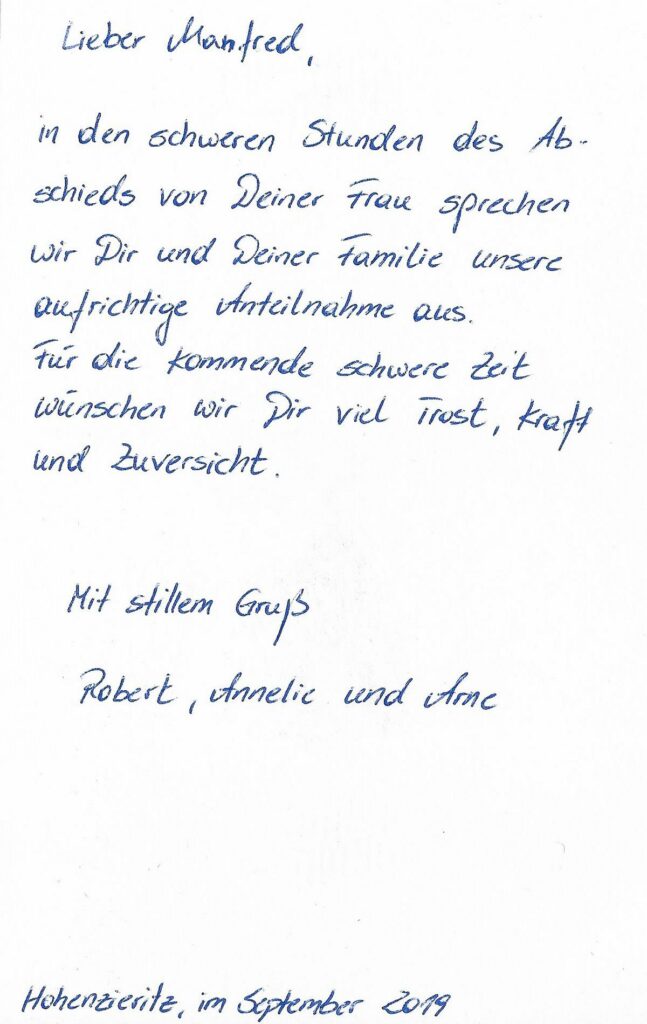 Lieber Manfred,
in den schweren Stunden des Ab-
schieds von Deiner Frau sprechen
wir Dir und Deiner Familie unsere
aufrichtige Anteilnahme aus.
Für die kommende schwere Zeit
wünschen wir Dir viel Trost, Kraft
und Zuversicht.
Mit stillem Gruß
Robert, Annelie und Arne
Hohenzieritz, im September 2019